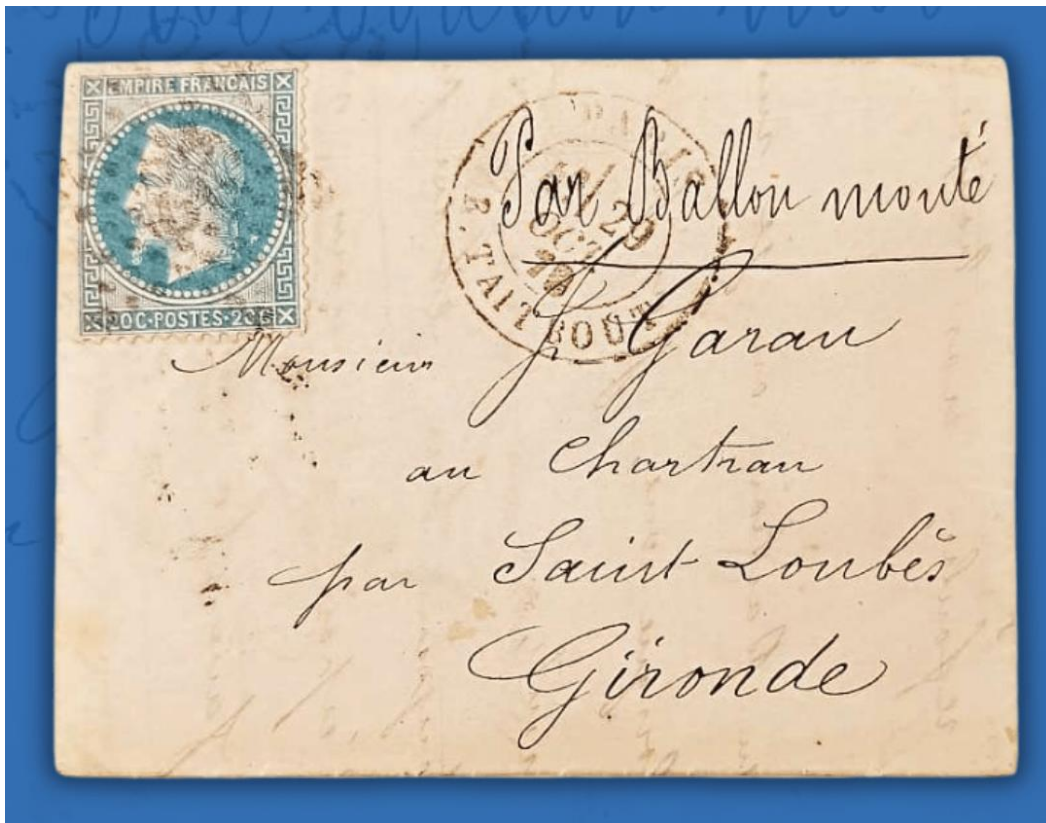 EMPIRE FRANÇAIS
20C·POSTES·20C
PARIS
29
OCT
70
R. TAITBOUT
Par Ballon monté
Monsieur J. Garau
au Chartrau
par Saint-Loubès
Gironde